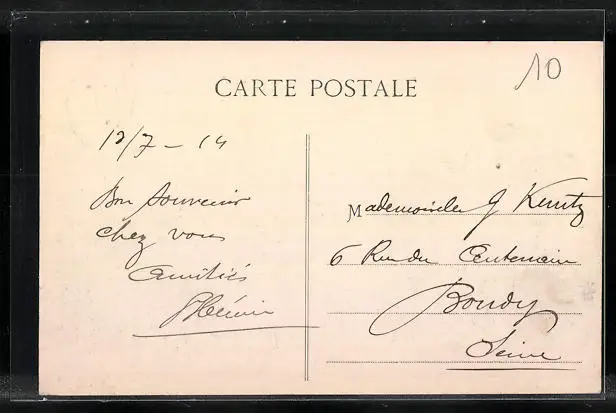 10
CARTE POSTALE
12/7 - 14
Bon souvenir
chez vous
Amitiés
Mademoiselle G Kuntz
6 Rue du Centenaire
Bondy
Seine